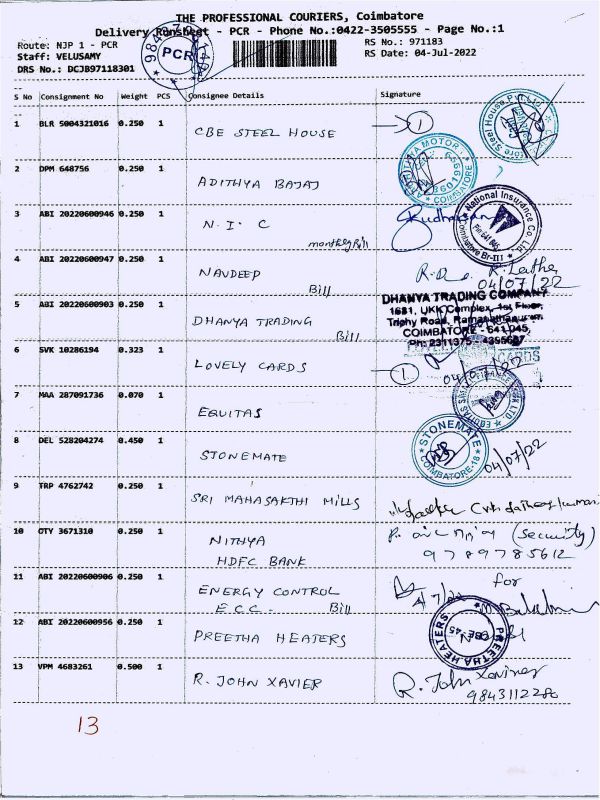 THE PROFESSIONAL COURIERS, Coimbatore
Delivery Runsheet - PCR - Phone No.:0422-3505555 - Page No.:1
Route: NJP 1 - PCR
RS No.: 971183
Staff: VELUSAMY
RS Date: 04-Jul-2022
DRS No.: DCJB97118301
PCR
S No Consignment No Weight PCS Consignee Details Signature
1 BLR 5004321016 0.250 1 CBE STEEL HOUSE 1
2 DPM 648756 0.250 1 ADITHYA BAJAJ
MOTOR
COIMBATORE
3 ABI 20220600946 0.250 1 N.I.C
monthly Bill
National Insurance Co. Ltd
Coimbatore Br-III
4 ABI 20220600947 0.250 1 NAVDEEP
Bill
04/07/22
5 ABI 20220600903 0.250 1 DHANYA TRADING
Bill
DHANYA TRADING COMPANY
1681, UKK Complex, 1st Floor,
Trichy Road, Ramanathapuram,
COIMBATORE - 641 045
6 SVK 10286194 0.323 1 LOVELY CARDS 1
CARDS
04/07/22
7 MAA 287091736 0.070 1 EQUITAS
EQUITAS
8 DEL 528204274 0.450 1 STONEMATE
STONEMATE
COIMBATORE-18
04/07/22
9 TRP 4762742 0.250 1 SRI MAHASAKTHI MILLS
10 CTY 3671310 0.250 1 NITHYA
HDFC BANK
(Security)
9789785612
11 ABI 20220600906 0.250 1 ENERGY CONTROL
E.C.C. Bill
for
4/7/22
12 ABI 20220600956 0.250 1 PREETHA HEATERS
PREETHA HEATERS
CBE 45
13 VPM 4683261 0.500 1 R. JOHN XAVIER
R. John Xavier
9843112280
13